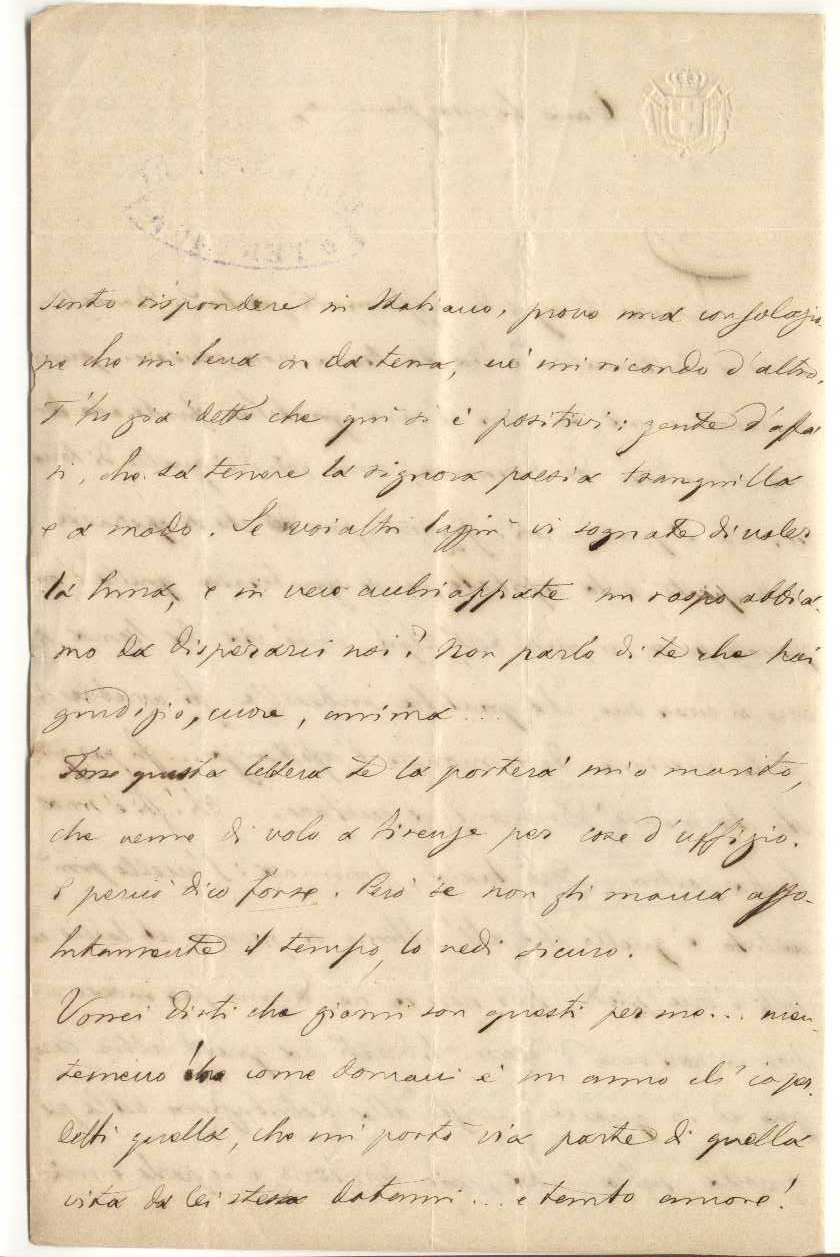 sento rispondere in Italiano, provo una consolazio-
ne che mi leva su da terra, nè mi ricordo d'altro.
T'ho già detto che qui si è positivi: gente d'affa
ri, che sa tenere la signora poesia tranquilla
e a modo. Se voialtri laggiù vi sognate di voler
la luna, e in vece acchiappate un rospo abbia-
mo da disperarci noi? Non parlo di te che hai
giudizio, cuore, anima...
Forse questa lettera te la porterà mio marito,
che venne di volo a Firenze per cose d'uffizio.
E perciò dico forse. Però se non gli manca asso-
lutamente il tempo, lo vedi sicuro.
Vorrei dirti che giorni son questi per me... nien-
temeno che come domani è un anno ch'io per-
detti quella, che mi portò via parte di quella
vita da lei stessa datami... e tanto amore!